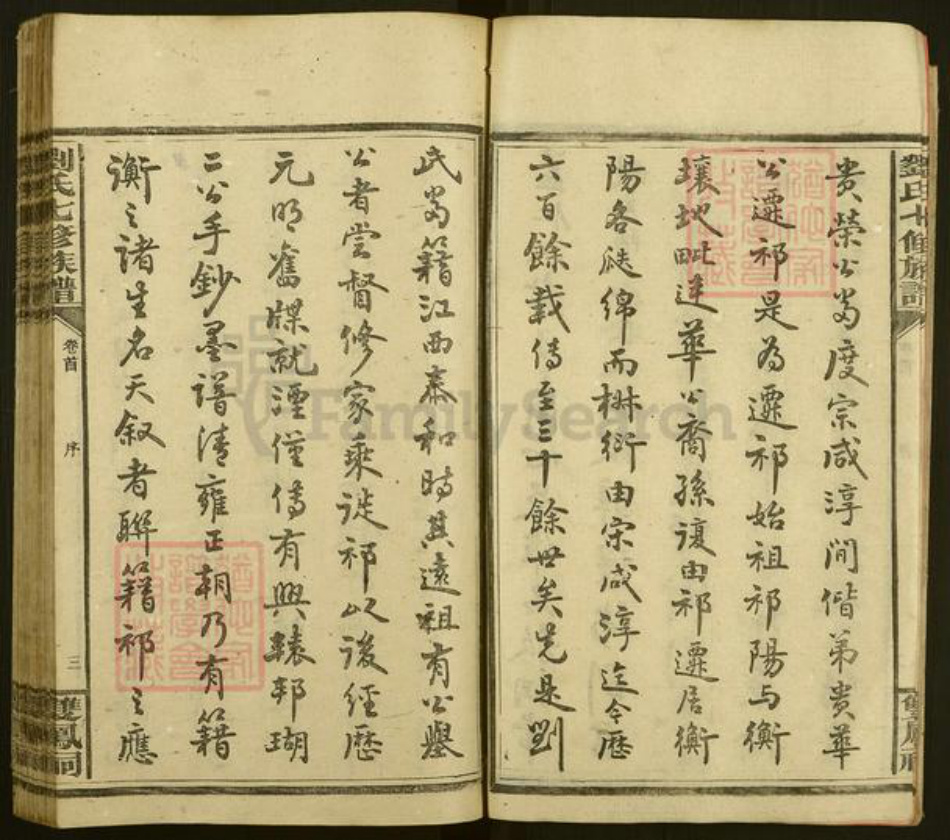 貴榮公當度宗咸淳間偕弟貴華
公遷祁是為遷祁始祖祁陽与衡
壤地毗連華公裔孫復由祁遷居衡
陽各徒绵而椒衍由宗咸淳迄今歷
六百餘载傳至三十餘世矣先是劉
氏當籍江西泰和時其遠祖有公舉
公者尝督修家乘徙祁以後經歷
元明舊牒就湮僅傳有興轅邦瑚
二公手鈔墨譜清雍正朝乃有籍
衡之諸生名天叙者聯籍祁之應
劉氏七修族譜
卷首
序
三
雙鳳祠
FamilySearch